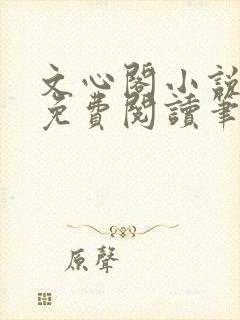 文心閣小說
免費閱讀筆
原聲